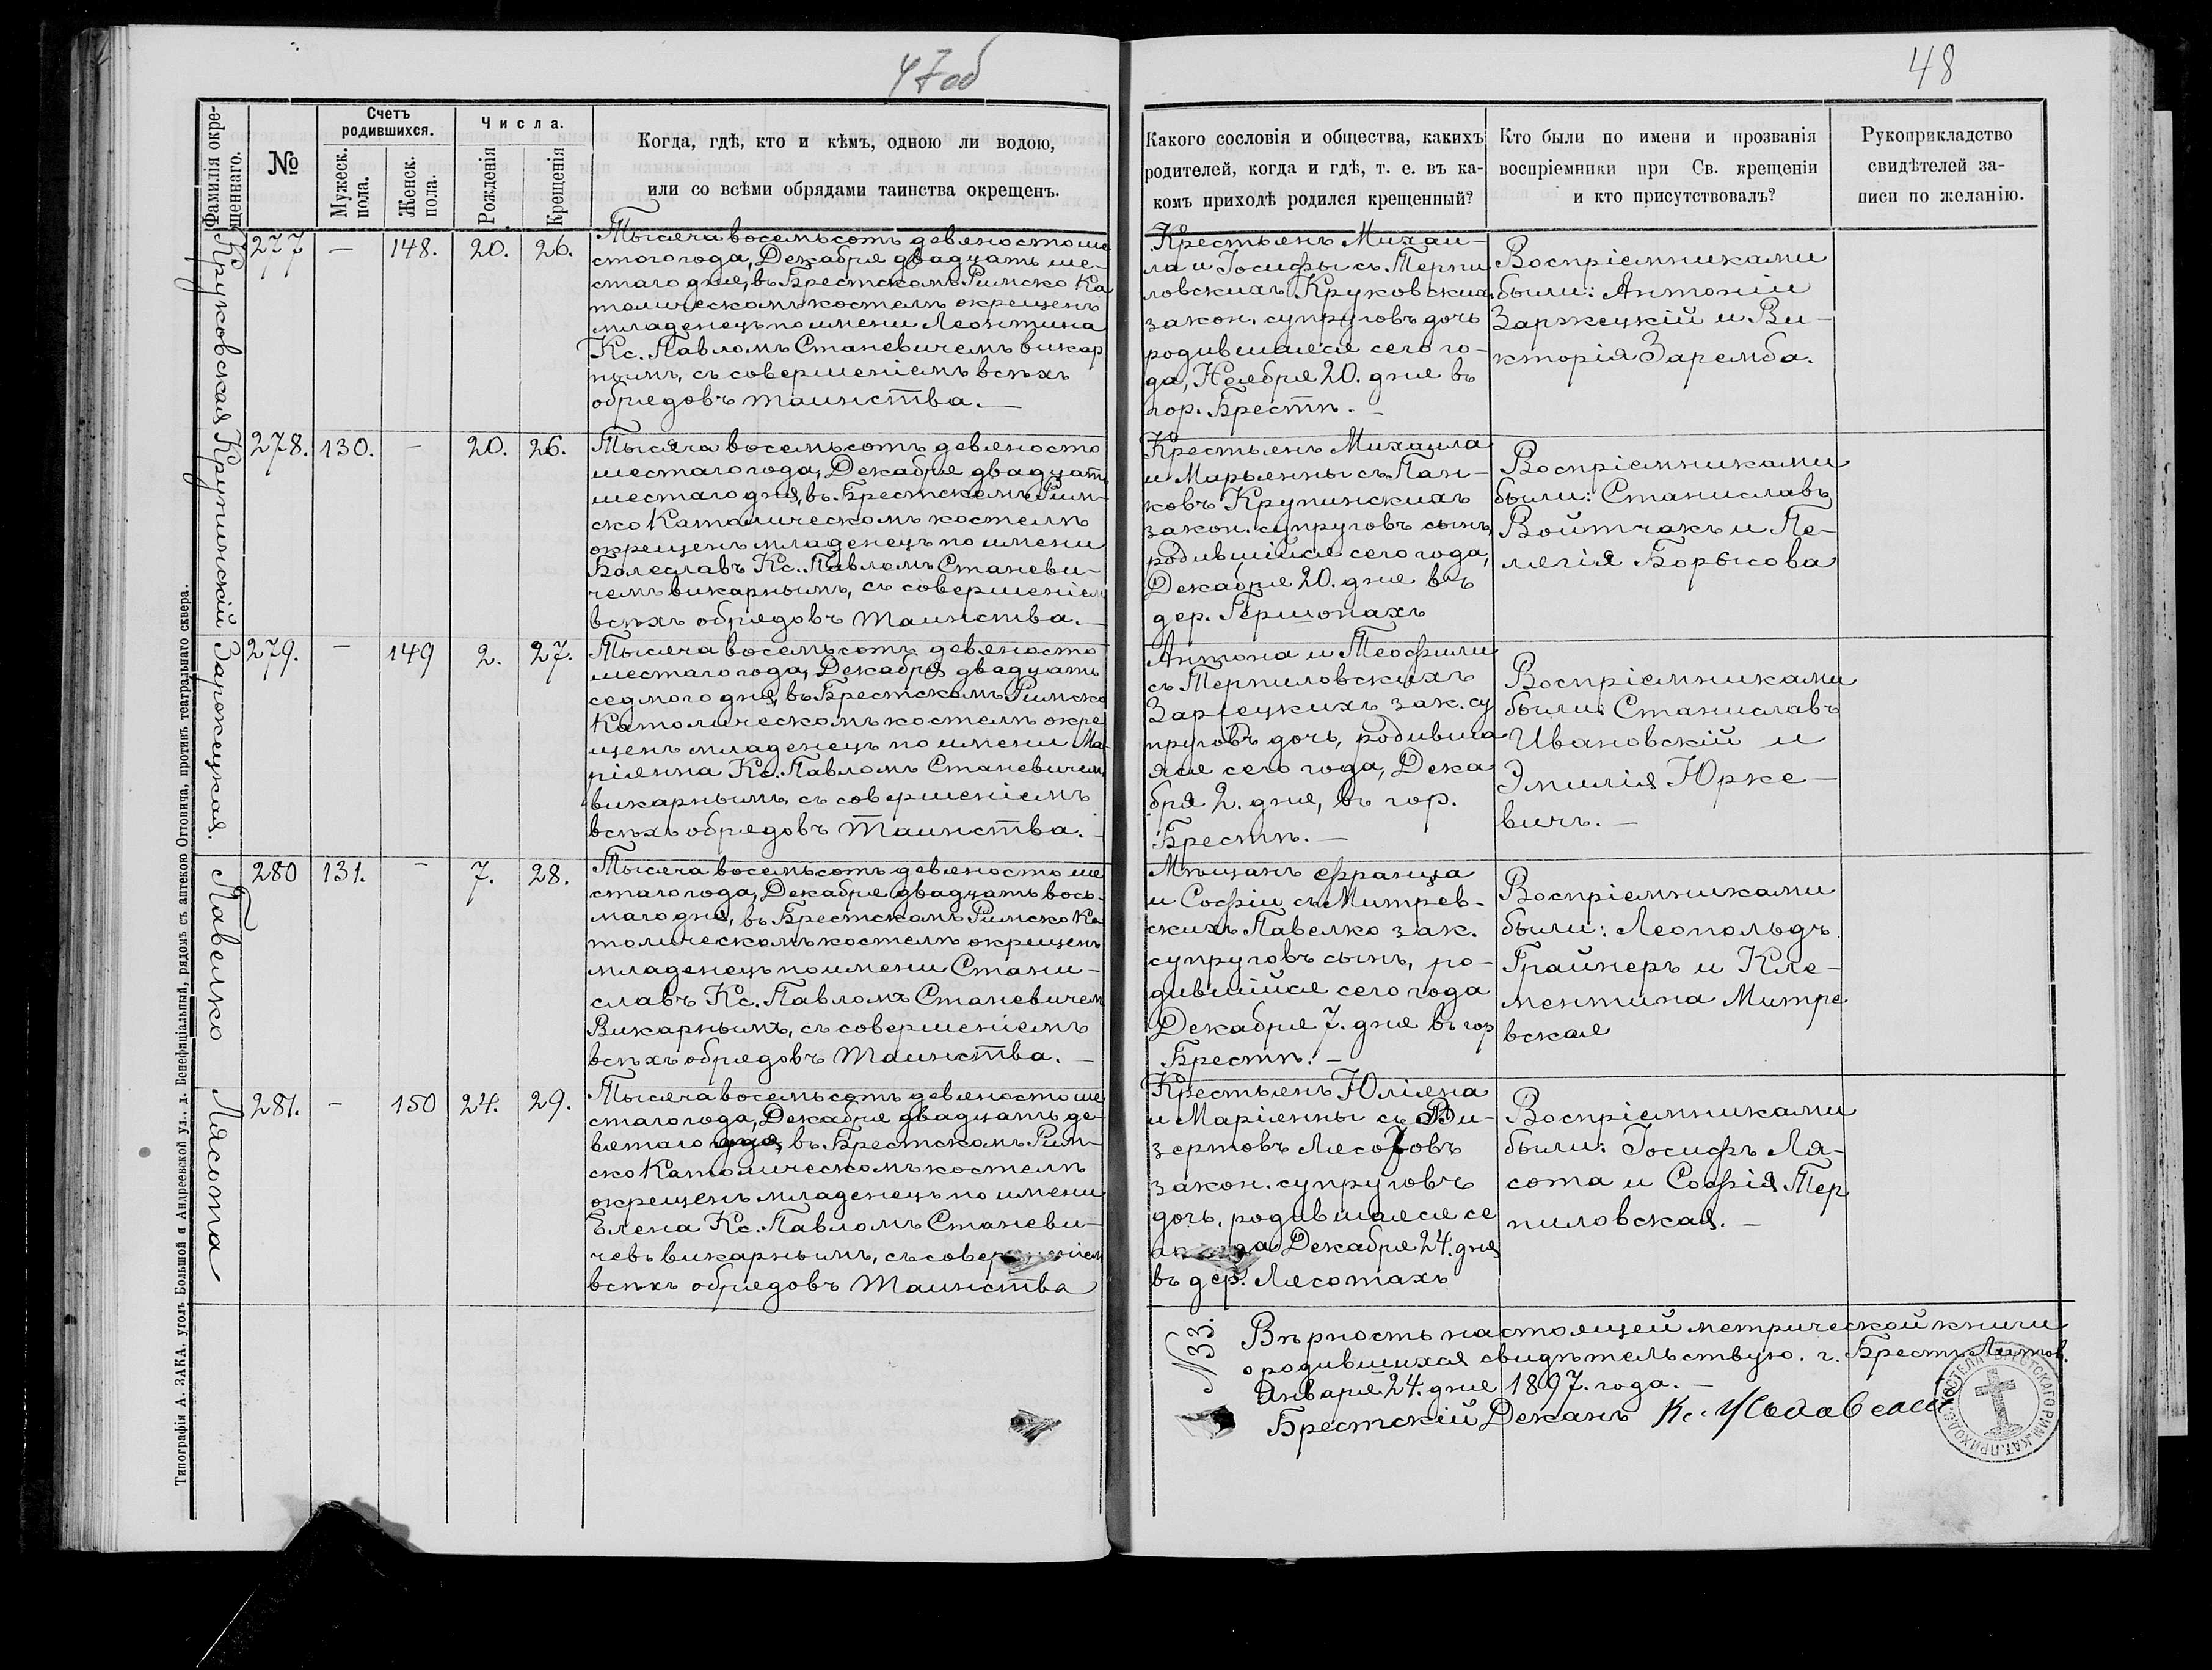 47об
48
Фамилія окре-
щеннаго.
№
Счетъ
родившихся.
Мужеск.
пола.
Женск.
пола.
Числа.
Рожденія
Крещенія
Когда, гдѣ, кто и кѣмъ, одною ли водою,
или со всѣми обрядами таинства окрещенъ.
Какого сословія и общества, какихъ
родителей, когда и гдѣ, т. е. въ ка-
комъ приходѣ родился крещенный?
Кто были по имени и прозванія
воспріемники при Св. крещеніи
и кто присутствовалъ?
Рукоприкладство
свидѣтелей за-
писи по желанію.
Круковская
277 — 148. 20. 26.
Тысяча восемьсотъ девяносто ше
стого года, Декабря двадцать ше-
стаго дня, въ Брестскомъ Римско Ка
толическомъ костелѣ окрещенъ
младенецъ по имени Леонтина
Кс. Павломъ Станевичемъ викар
нымъ, съ совершеніемъ всѣхъ
обрядовъ таинства. —
Крестьянъ Михаи-
ла и Іосифы съ Терпи
ловскихъ Круковских
закон. супруговъ дочь
родившаяся сего го-
да, Ноября 20. дня въ
гор. Брестѣ. —
Воспріемниками
были: Антоній
Заржецкій и Ви-
кторія Заремба.
Крупинскій
278. 130. — 20. 26.
Тысяча восемьсотъ девяносто
шестаго года, Декабря двадцать
шестаго дня, въ Брестскомъ Рим-
ско Католическомъ костелѣ
окрещенъ младенецъ по имени
Болеславъ Кс. Павломъ Станеви-
чемъ викарнымъ, съ совершеніем
всѣхъ обрядовъ таинства. —
Крестьянъ Михаила
и Марьянны съ Пан-
ковъ Крупинскихъ
закон. супруговъ сынъ,
родившійся сего года,
Декабря 20. дня въ
дер. Гершонахъ
Воспріемниками
были: Станиславъ
Войтчакъ и Пе-
лагія Борысова
Заржецкая.
279. — 149 2. 27.
Тысяча восемьсотъ девяносто
шестаго года, Декабря двадцать
седмого дня, въ Брестскомъ Римско
Католическомъ костелѣ окре
щенъ младенецъ по имени Ма-
ріянна Кс. Павломъ Станевичем
викарнымъ, съ совершеніемъ
всѣхъ обрядовъ таинства. —
Антона и Теофили
съ Терпиловскихъ
Заржецкихъ зак. су
пруговъ дочь, родивша
яся сего года, Дека
бря 2. дня, въ гор.
Брестѣ. —
Воспріемниками
были: Станиславъ
Ивановскій и
Эмилія Юрке-
вичъ. —
Павелко
280 131. — 7. 28.
Тысяча восемьсотъ девяносто ше
стаго года, Декабря двадцать вось-
маго дня, въ Брестскомъ Римско Ка
толическомъ костелѣ окрещенъ
младенецъ по имени Стани-
славъ Кс. Павломъ Станевичем
Викарнымъ, съ совершеніемъ
всѣхъ обрядовъ таинства. —
Мѣщанъ Франца
и Софіи съ Митрев-
скихъ Павелко зак.
супруговъ сынъ, ро-
дившійся сего года
Декабря 7. дня въ гор
Брестѣ. —
Воспріемниками
были: Леопольдъ
Грайнеръ и Кле-
ментина Митре
вская
Лясота
281. — 150 24. 29.
Тысяча восемьсотъ девяносто ше
стаго года, Декабря двадцать де-
вятаго дня, въ Брестскомъ Рим-
ско Католическомъ костелѣ
окрещенъ младенецъ по имени
Елена Кс. Павломъ Станеви-
чевъ викарнымъ, съ совер
всѣхъ обрядовъ таинства
Крестьянъ Юліяна
и Маріянны съ Ви-
зертовъ Лясотовъ
закон. супруговъ
дочь, родившаяся се
Декабря 24. дня
въ дер. Лясотахъ
Воспріемниками
были: Іосифъ Ля-
сота и Софія Тер
пиловская. —
№ 33.
Вѣрность настоящей метрической книги
о родившихся свидѣтельствую. г. Брестъ Литов.
Января 24. дня 1897. года. —
Брестскій Деканъ Кс.
Типографія А. ЗАКА, уголъ Большой и Андреевской ул., д. Бенефиціальный, рядомъ съ аптекою Оттовича, противъ театральнаго сквера.